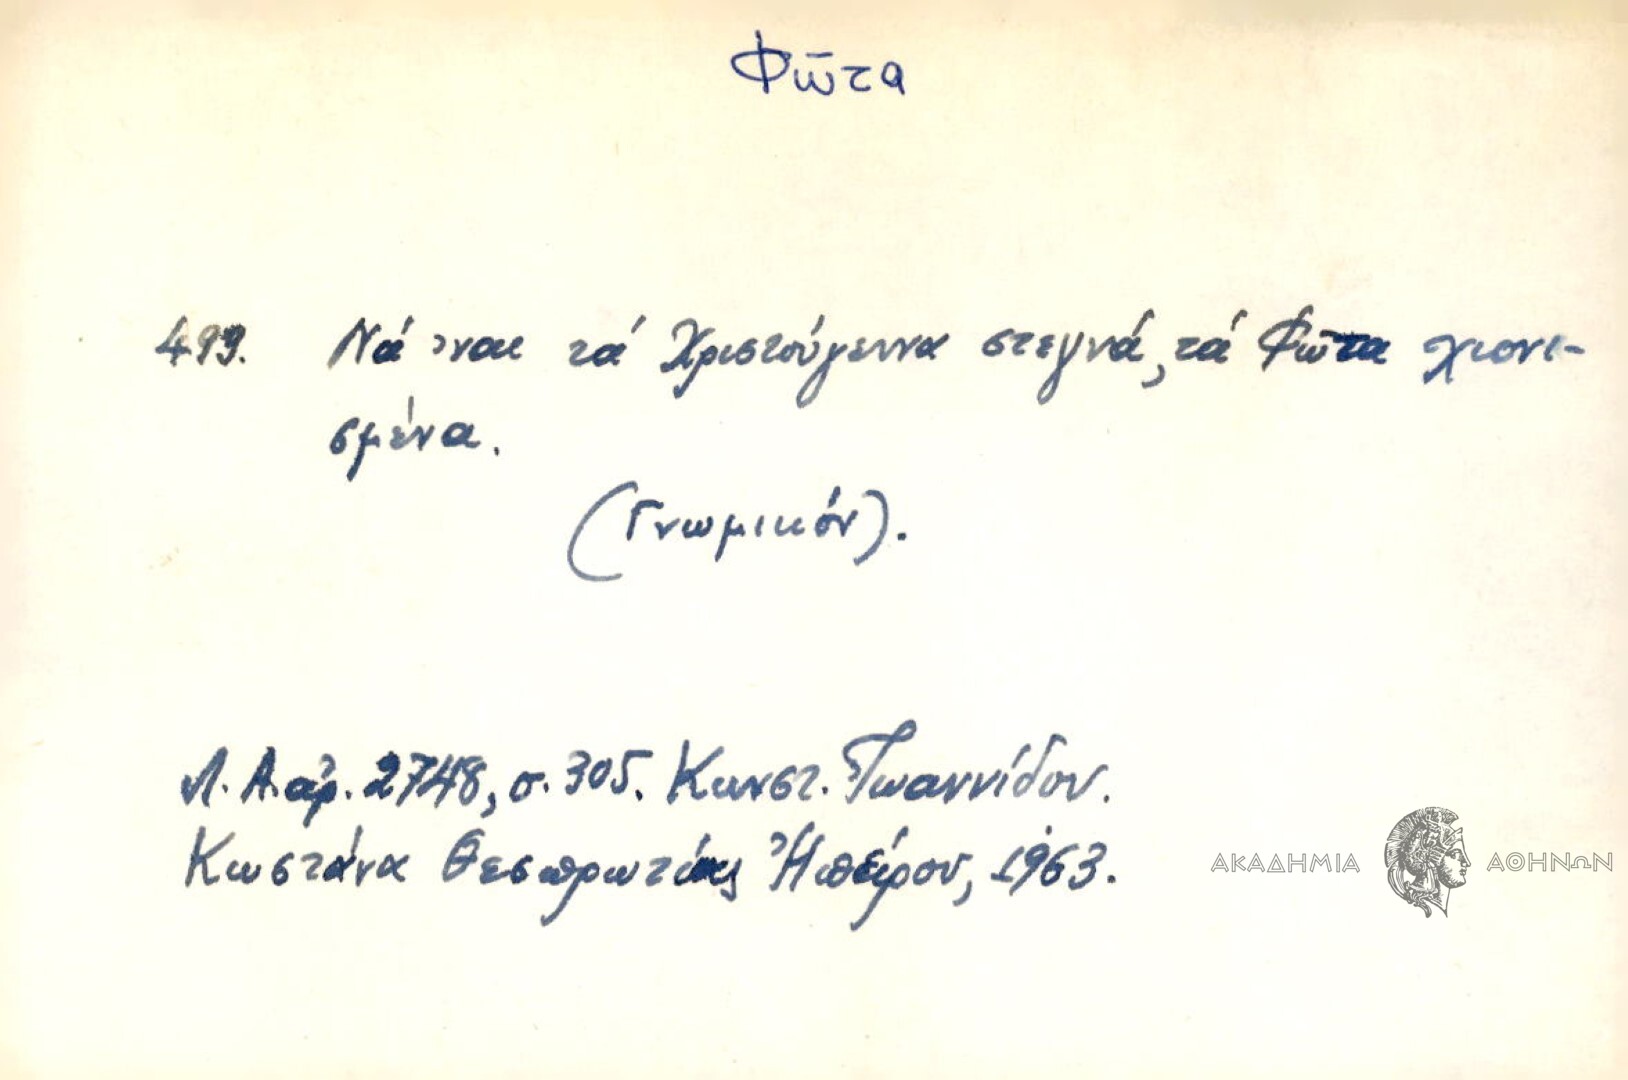 Φῶτα
499. Νά 'ναι τά Χριστούγεννα στεγνά, τά Φῶτα χιονι-
σμένα.
(Γνωμικόν).
Λ.Α. ἀρ. 2748, σ. 305. Κωνστ. Ἰωαννίδου.
Κωστάνα Θεσπρωτίας Ἠπείρου, 1963.
ΑΚΑΔΗΜΙΑ ΑΘΗΝΩΝ